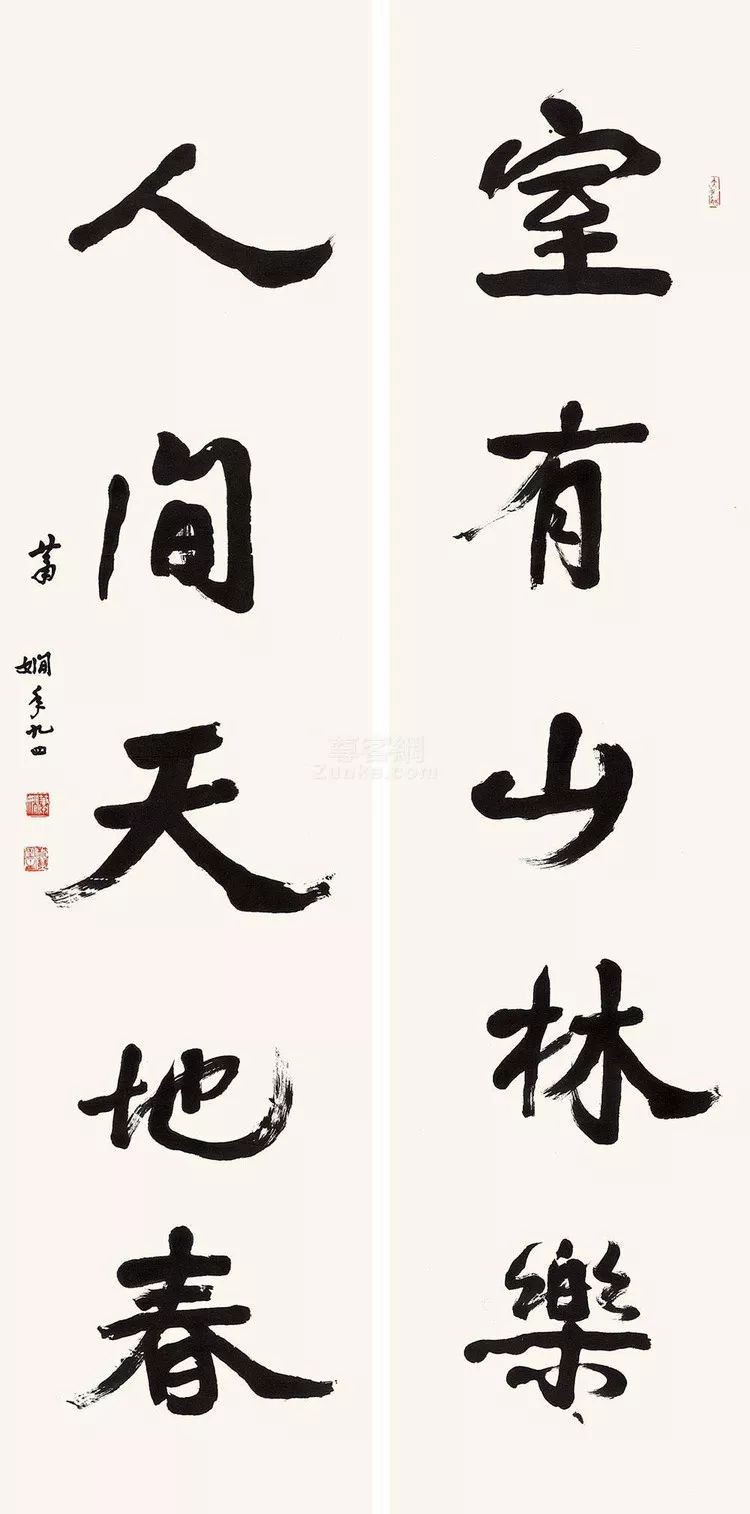 室有山林樂
人间天地春
蕭嫺年九四
尊客網
Zunke.com